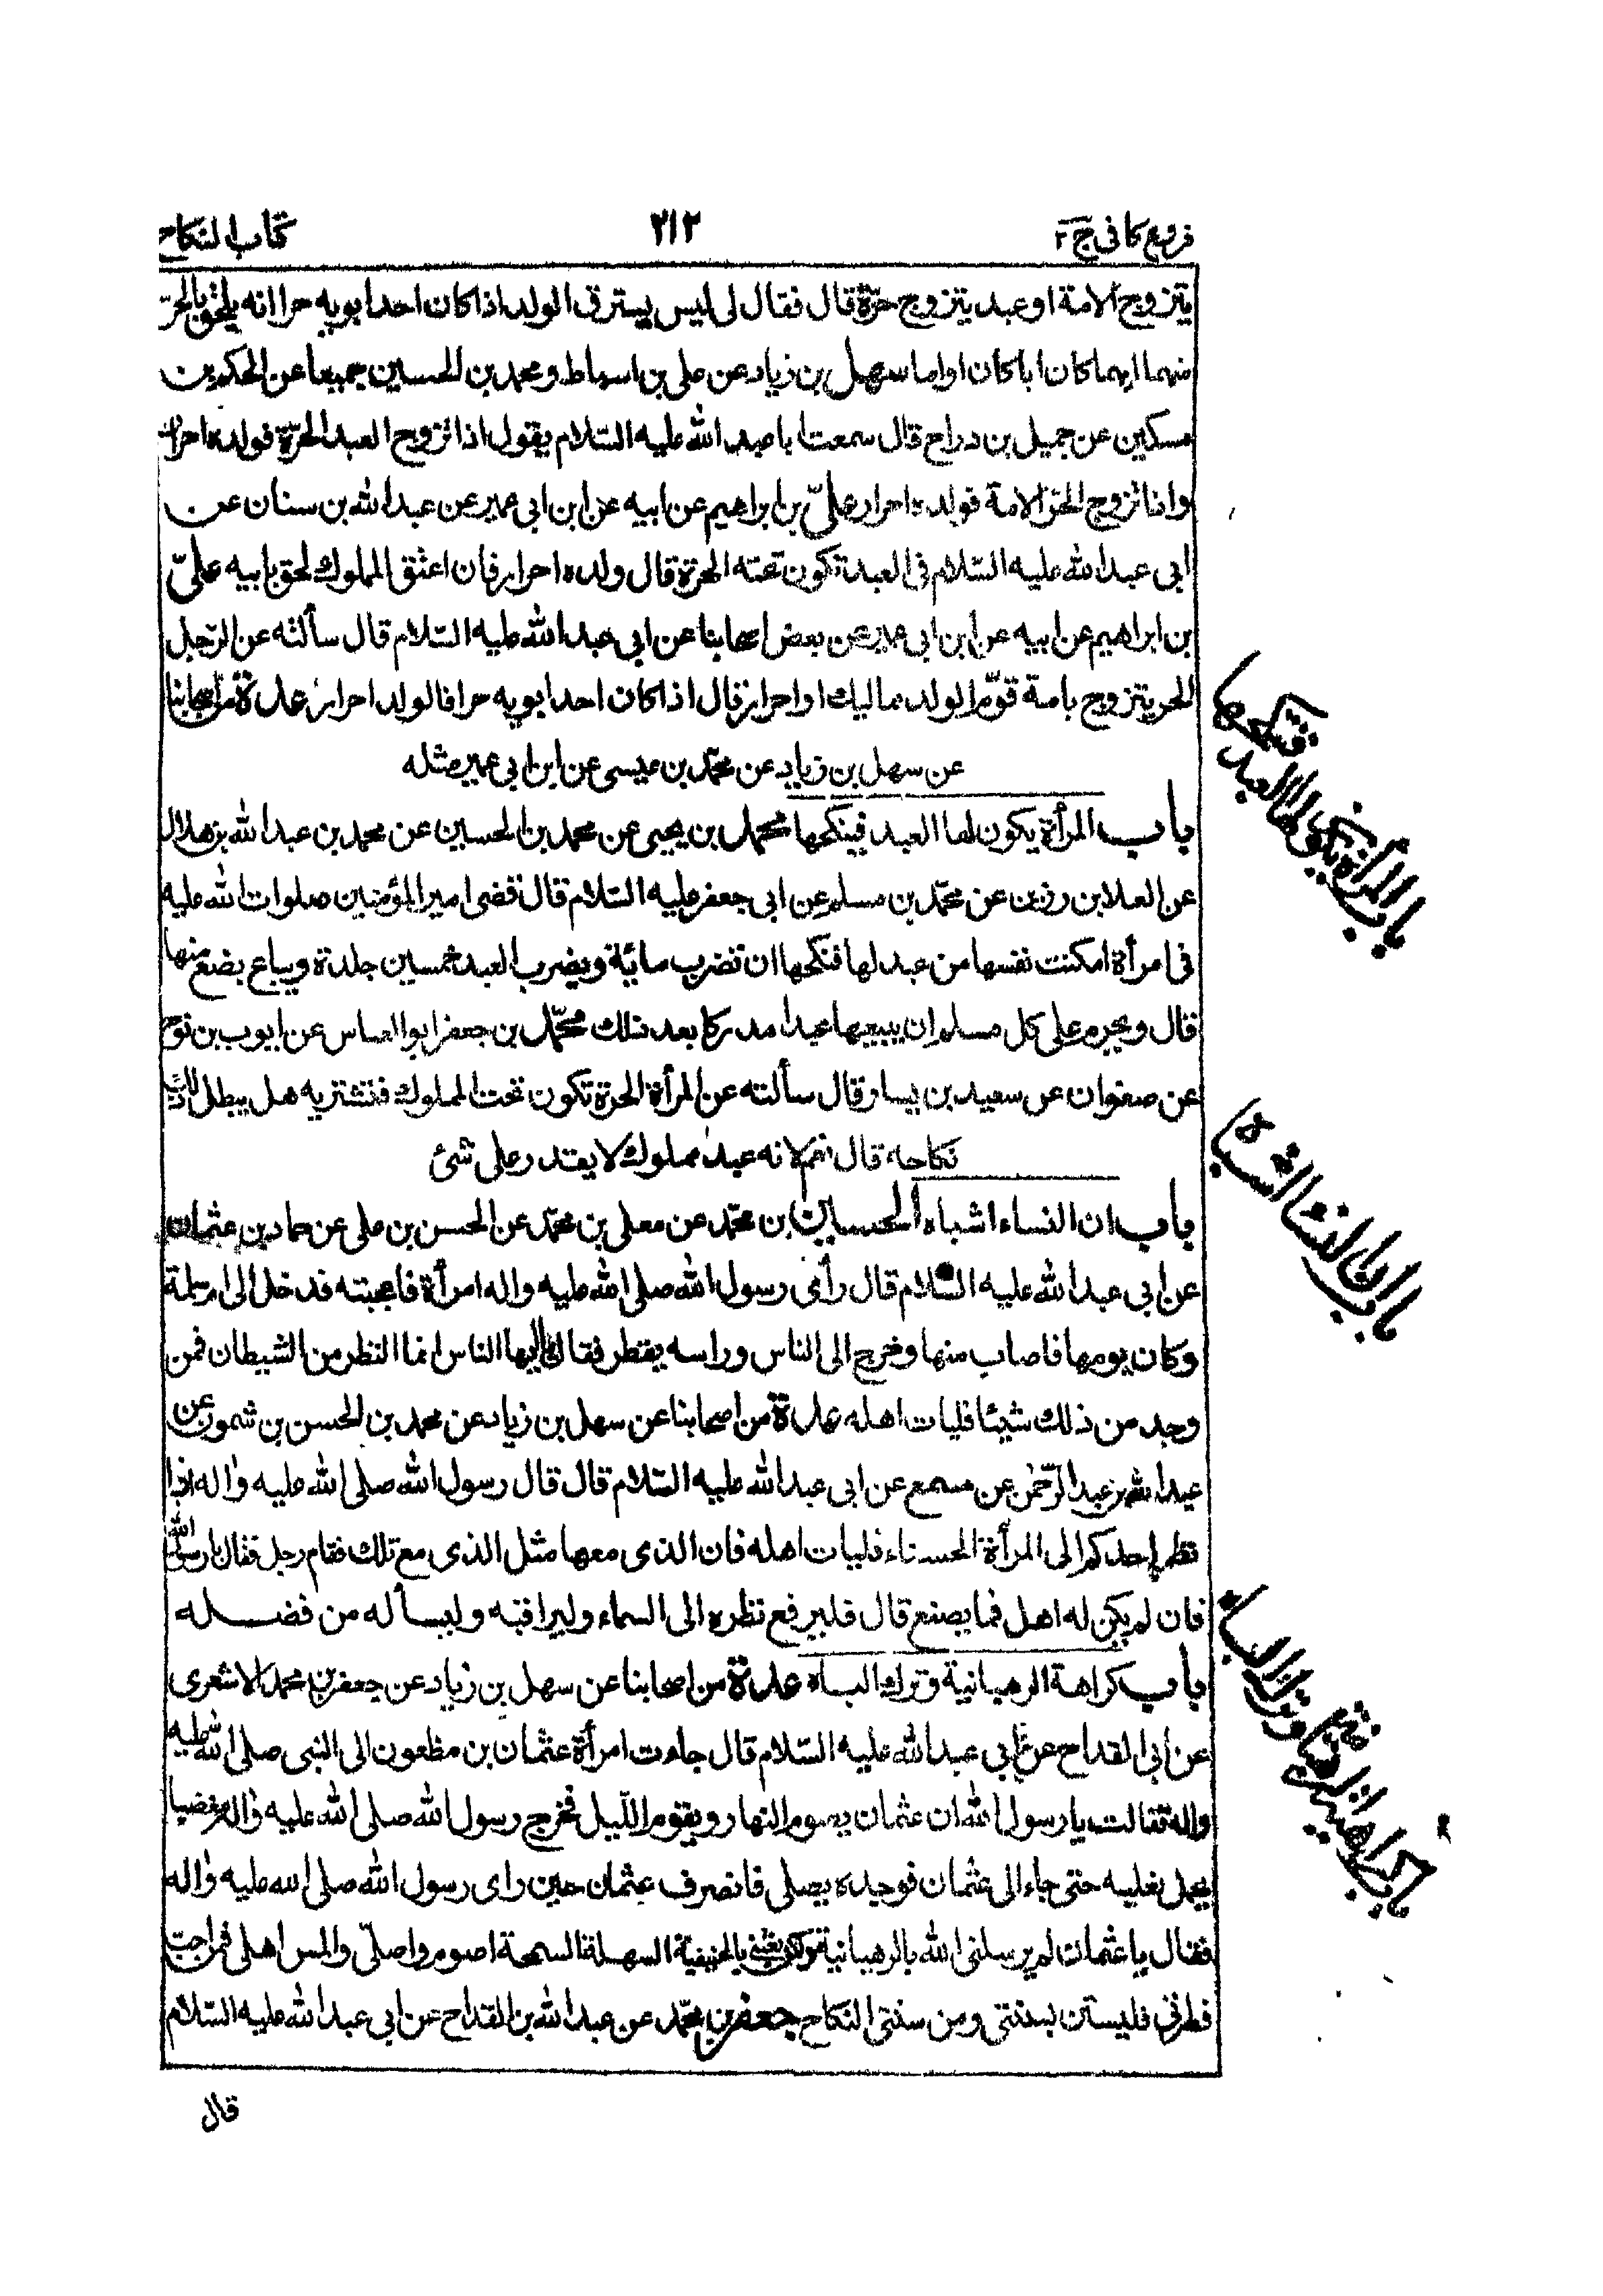 فروع كافى ج ٢
٢١٢
كتاب النكاح
يتزوج الامة او عبد يتزوج حرّة قال فقال لى ليس يسترق الولد اذا كان احد ابويه حرا انه يلحق بالحرّ
منهما ايهما كان ابا كان او اما سهل بن زياد عن على بن اسباط ومحمد بن الحسين جميعا عن الحكم بن
مسكين عن جميل بن دراج قال سمعت ابا عبد الله عليه السّلام يقول اذا تزوج العبد الحرّة فولده احرار
واذا تزوج الحرّ الامة فولده احرار علىّ بن ابراهيم عن ابيه عن ابن ابى عمير عن عبد الله بن سنان عن
ابى عبد الله عليه السّلام فى العبد تكون تحته الحرّة قال ولده احرار فان اعتق المملوك لحق بابيه علىّ
بن ابراهيم عن ابيه عن ابن ابى عمير عن بعض اصحابنا عن ابى عبد الله عليه السّلام قال سألته عن الرّجل
الحر يتزوج بامة قوم الولد مماليك او احرار قال اذا كان احد ابويه حرا فالولد احرار عدة من اصحابنا
عن سهل بن زياد عن محمّد بن عيسى عن ابن ابى عمير مثله
باب المرأة يكون لها العبد فينكحها محمد بن يحيى عن محمد بن الحسين عن محمد بن عبد الله بن هلال
عن العلا بن رزين عن محمّد بن مسلم عن ابى جعفر عليه السّلام قال قضى امير المؤمنين صلوات الله عليه
فى امرأة امكنت نفسها من عبد لها فنكحها ان تضرب مائة ويضرب العبد خمسين جلدة ويباع بصغر منها
قال ويحرم على كل مسلم ان يبيعها عبدا مدركا بعد ذلك محمّد بن جعفر ابو العباس عن ايوب بن نوح
عن صفوان عن سعيد بن يسار قال سألته عن المرأة الحرة تكون تحت المملوك فتشتريه هل يبطل ذلك
نكاحه قال نعم لانه عبد مملوك لا يقدر على شئ
باب ان النساء اشباه الحسين بن محمّد عن معلى بن محمّد عن الحسن بن على عن حماد بن عثمان
عن ابى عبد الله عليه السّلام قال رأى رسول الله صلى الله عليه واله امرأة فاعجبته فدخل الى ام سلمة
وكان يومها فاصاب منها وخرج الى الناس وراسه يقطر فقال ايها الناس انما النظر من الشيطان فمن
وجد من ذلك شيئا فليات اهله عدة من اصحابنا عن سهل بن زياد عن محمد بن الحسن بن شمون عن
عبد الله بن عبد الرّحمٰن عن مسمع عن ابى عبد الله عليه السّلام قال قال رسول الله صلى الله عليه واله اذا
نظر احدكم الى المرأة الحسناء فليات اهله فان الذى معها مثل الذى مع تلك فقام رجل فقال يا رسول الله
فان لم يكن له اهل فما يصنع قال فليرفع نظره الى السماء وليراقبه وليسأله من فضله
باب كراهة الرهبانية وترك الباه عدة من اصحابنا عن سهل بن زياد عن جعفر بن محمد الاشعرى
عن ابن القداح عن ابى عبد الله عليه السّلام قال جاءت امرأة عثمان بن مظعون الى النبى صلى الله عليه
واله فقالت يا رسول الله ان عثمان يصوم النهار ويقوم اللّيل فخرج رسول الله صلى الله عليه واله مغضبا
يحمل نعليه حتى جاء الى عثمان فوجده يصلى فانصرف عثمان حين راى رسول الله صلى الله عليه واله
فقال يا عثمان لم يرسلنى الله بالرهبانية ولكن بعثنى بالحنيفية السهلة السمحة اصوم واصلّى والمس اهلى فمن احب
فطرتى فليستن بسنتى ومن سنتى النكاح جعفر بن محمّد عن عبد الله بن القداح عن ابى عبد الله عليه السّلام
قال
باب المرأة يكون لها العبد
فينكحها
باب ان النساء اشباه
باب كراهية الرهبانية وترك الباه